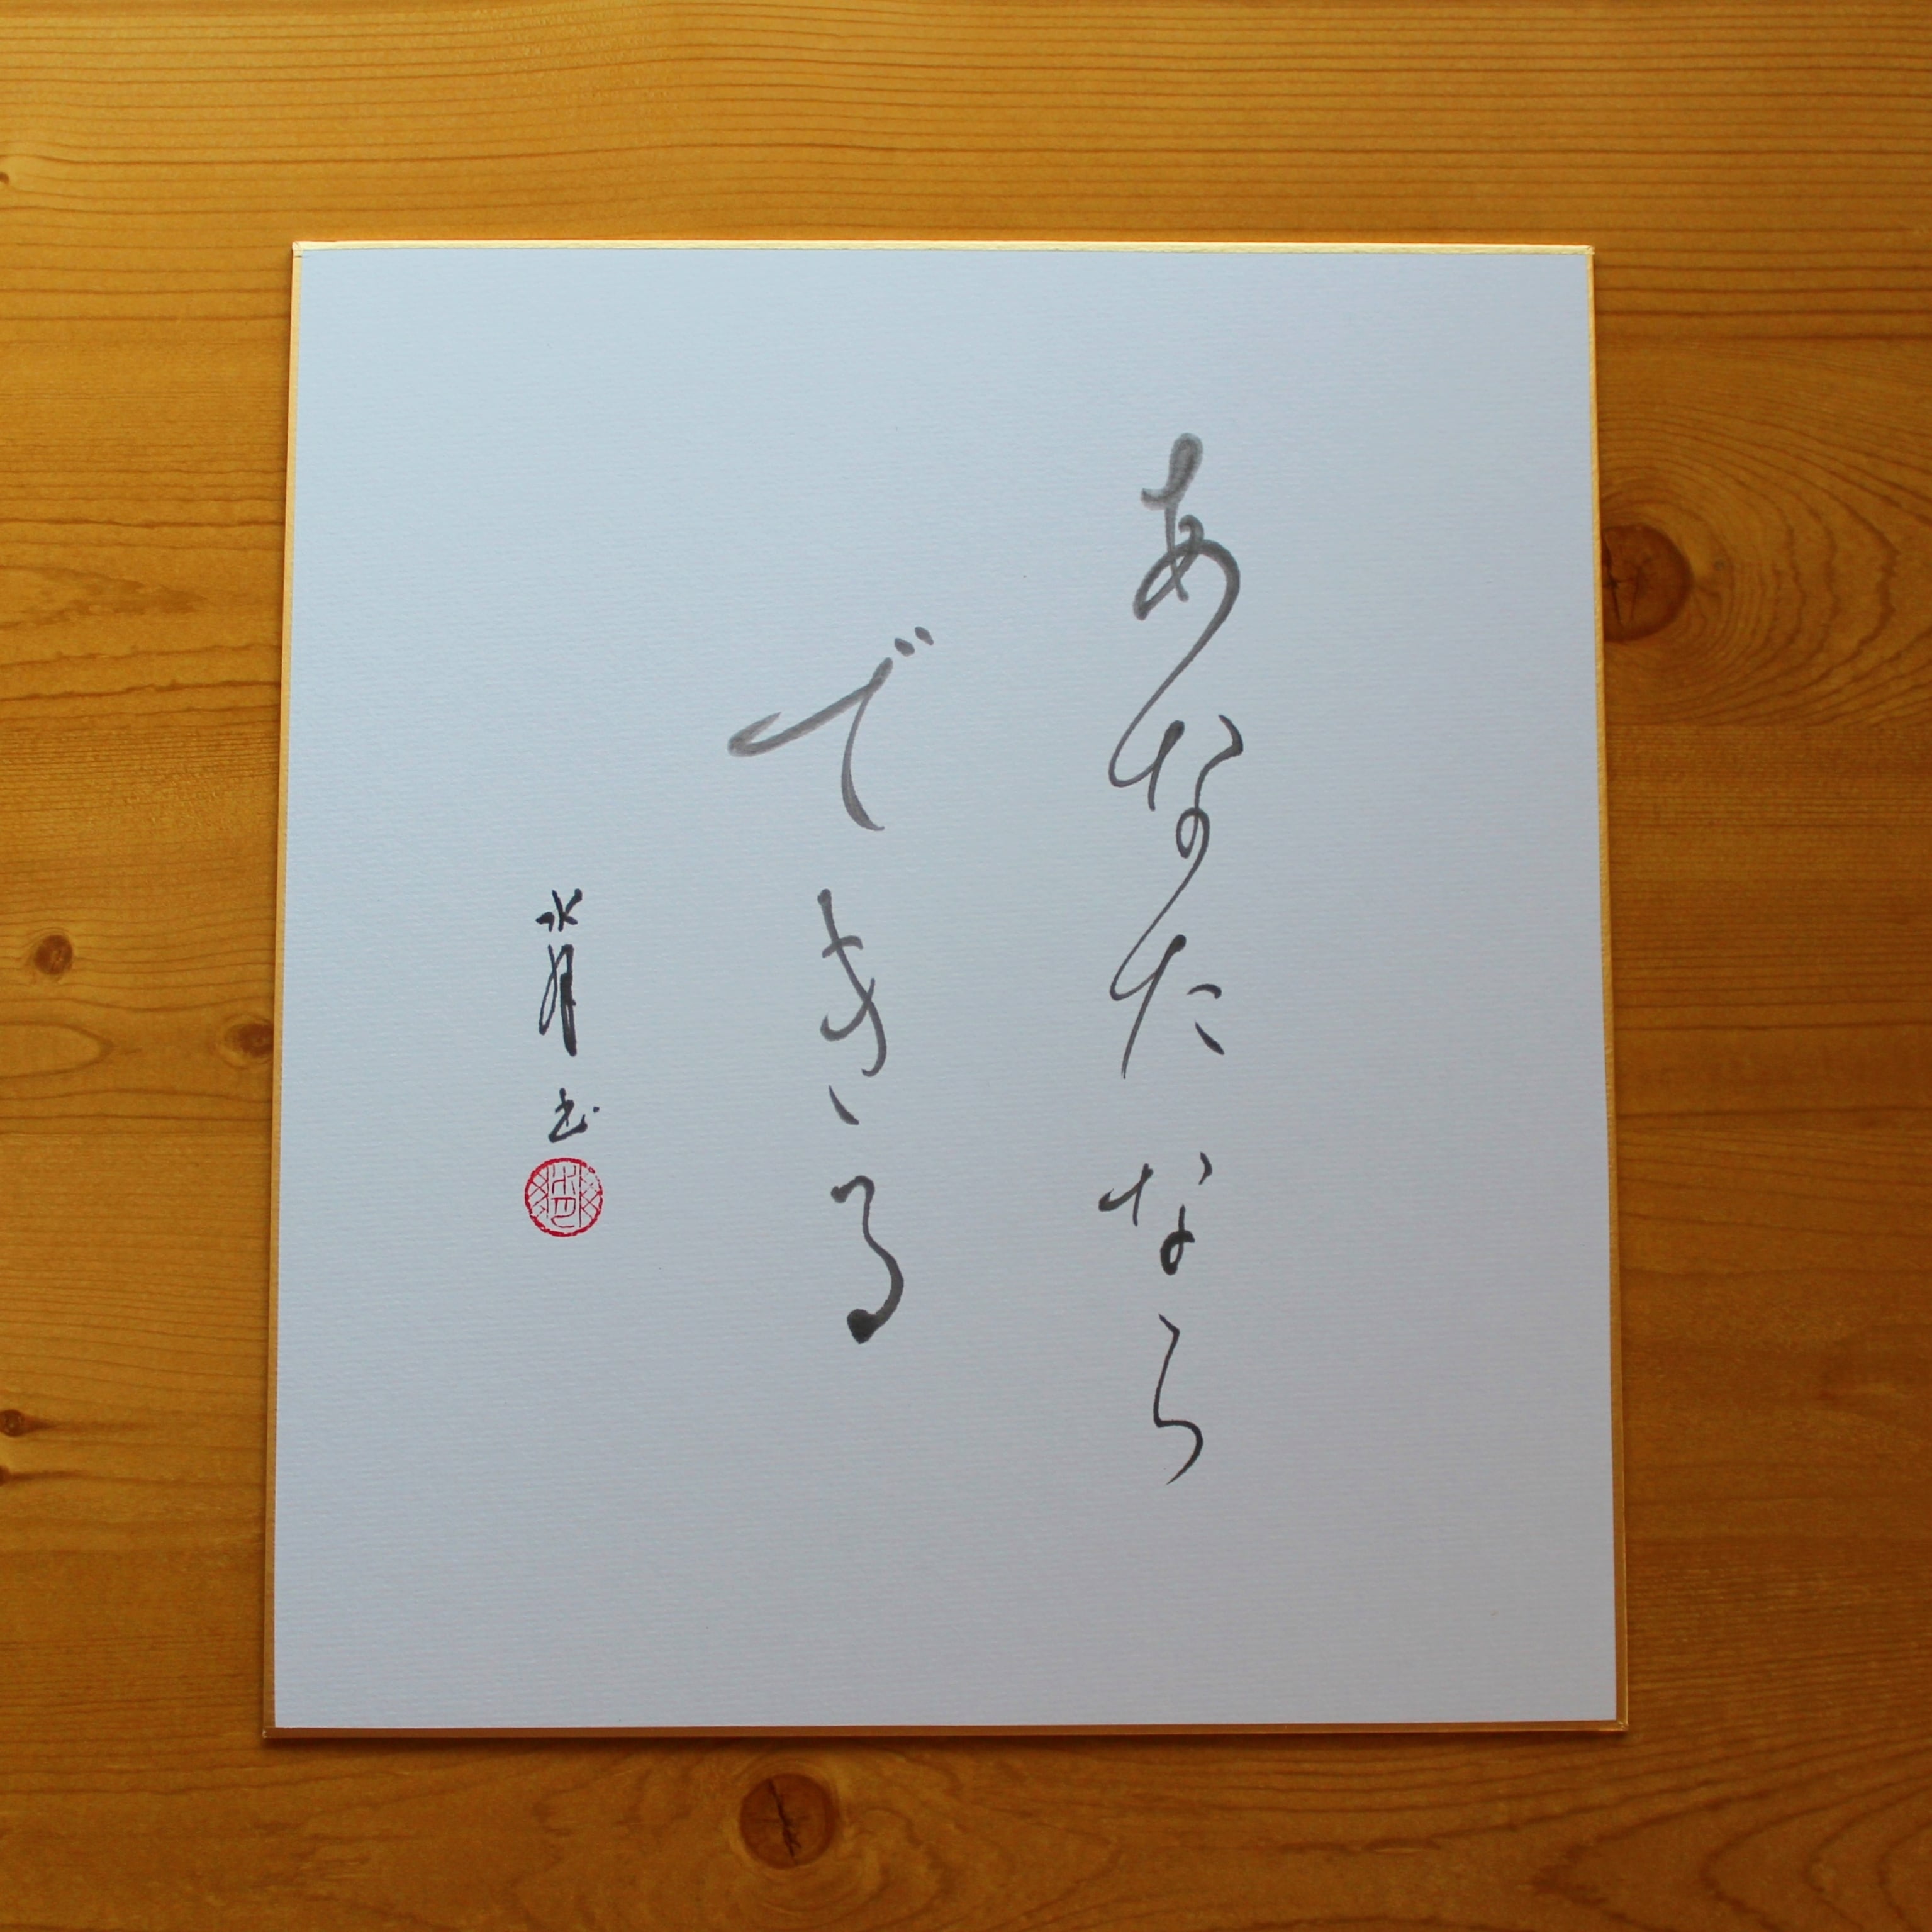 あなたなら
できる
水月書